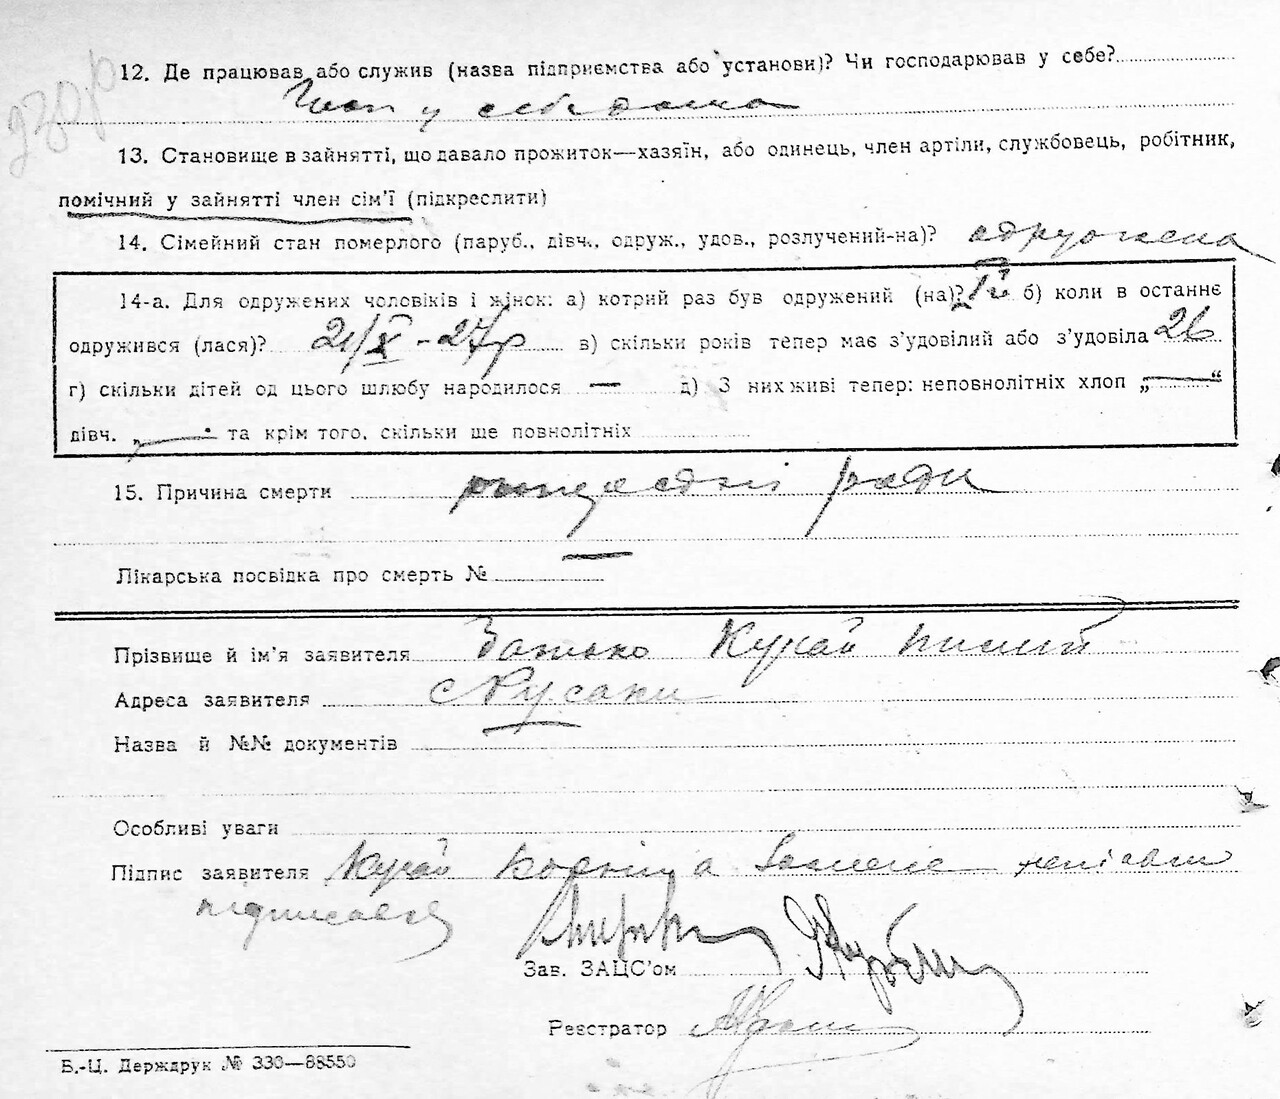 12. Де працював або служив (назва підприємства або установи)? Чи господарював у себе?
у себе дома
13. Становище в зайнятті, що давало прожиток—хазяїн, або одинець, член артіли, службовець, робітник,
помічний у зайнятті член сім'ї (підкреслити)
14. Сімейний стан померлого (паруб., дівч., одруж., удов., розлучений-на)? одружена
14-а. Для одружених чоловіків і жінок: а) котрий раз був одружений (на)? б) коли в останнє
одружився (лася)? 21/X - 27р в) скільки років тепер має з'удовілий або з'удовіла 26
г) скільки дітей од цього шлюбу народилося — д) З них живі тепер: неповнолітніх хлоп „—“
дівч. „—“ та крім того, скільки ще повнолітніх
15. Причина смерти
Лікарська посвідка про смерть № —
Прізвище й ім'я заявителя
Адреса заявителя с Русаки
Назва й №№ документів
Особливі уваги
Підпис заявителя
підписався
Зав. ЗАЦС'ом
Реєстратор
Б.-Ц. Держдрук № 330—88550